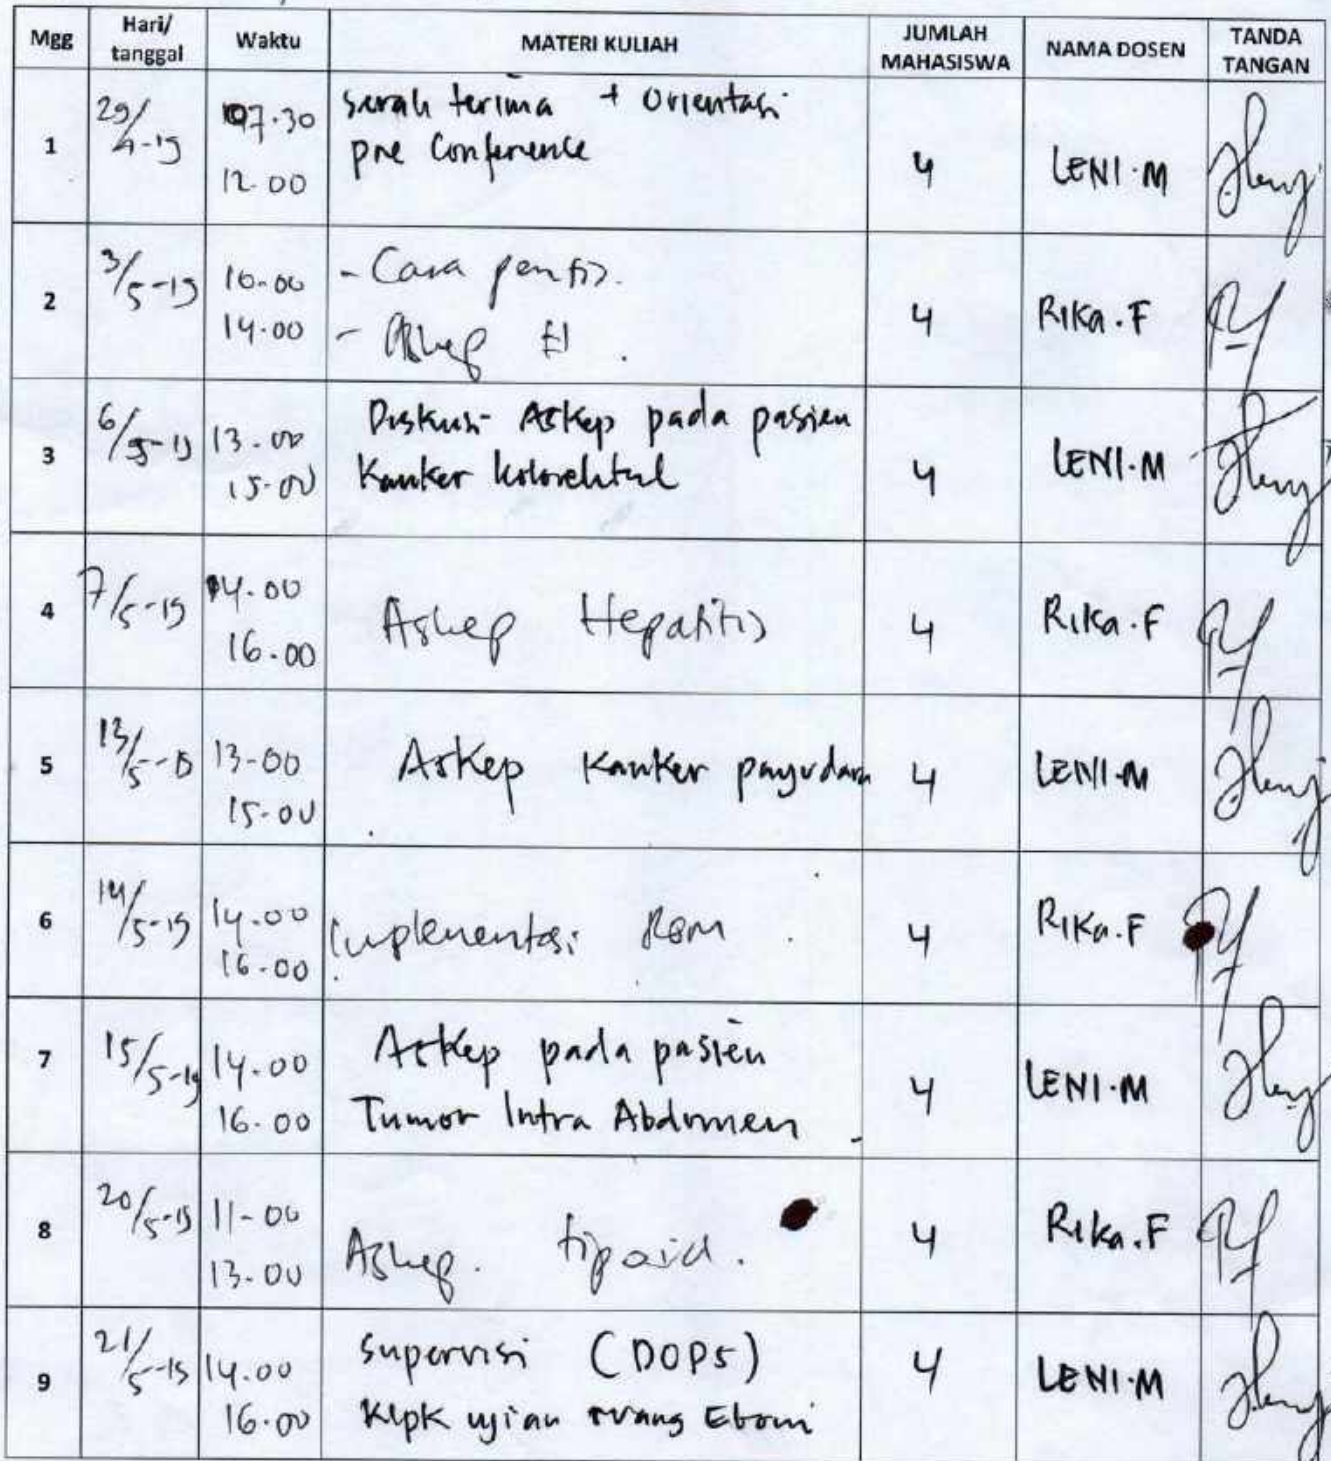 Mgg Hari/ tanggal Waktu MATERI KULIAH JUMLAH MAHASISWA NAMA DOSEN TANDA TANGAN
1 29/4-19 07.30 Serah terima + Orientasi
12.00 pre Conference 4 LENI.M
2 3/5-19 10.00 - Cara
14.00 - Askep 4 RIKa.F
3 6/5-19 13.00 Diskusi Askep pada pasien
15.00 Kanker kolorektal 4 LENI.M
4 7/5-19 14.00
16.00 Askep Hepatitis 4 RIKa.F
5 13/5-19 13-00 Askep Kanker payudara 4 LENI.M
15-00
6 14/5-19 14.00 Implementasi 4 RIKa.F
16-00
7 15/5-19 14.00 Askep pada pasien
16.00 Tumor Intra Abdomen 4 LENI.M
8 20/5-19 11-00
13-00 Askep. tipoid. 4 RIKa.F
9 21/5-19 14.00 Supervisi (DOPS) 4 LENI.M
16.00 Klpk ujian ruang Eboni